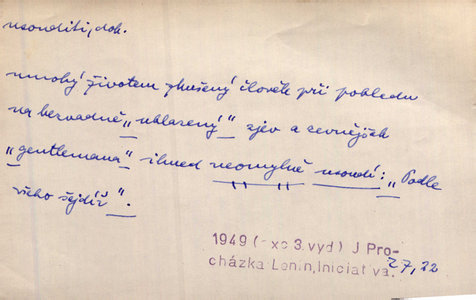 usouditi, dok.
mnohý životem zkušený člověk při pohledu
na bezvadně „uhlazený" zjev a zevnějšek
„gentlemana" ihned neomylně usoudí: „Podle
všeho šejdíř".
1949 ( xc 3.vyd) J Pro-
cházka Lenin, Iniciat va.
27,22